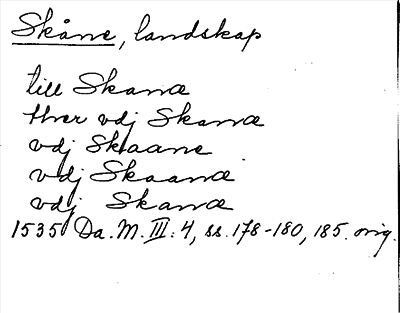 Skåne, landskap
till Skanæ
Hver vdj Skanæ
vdj Skaane
vdj Skaanæ
vdj Skanæ
1535 Da. M. III: 4, ss. 178-180, 185. orig.